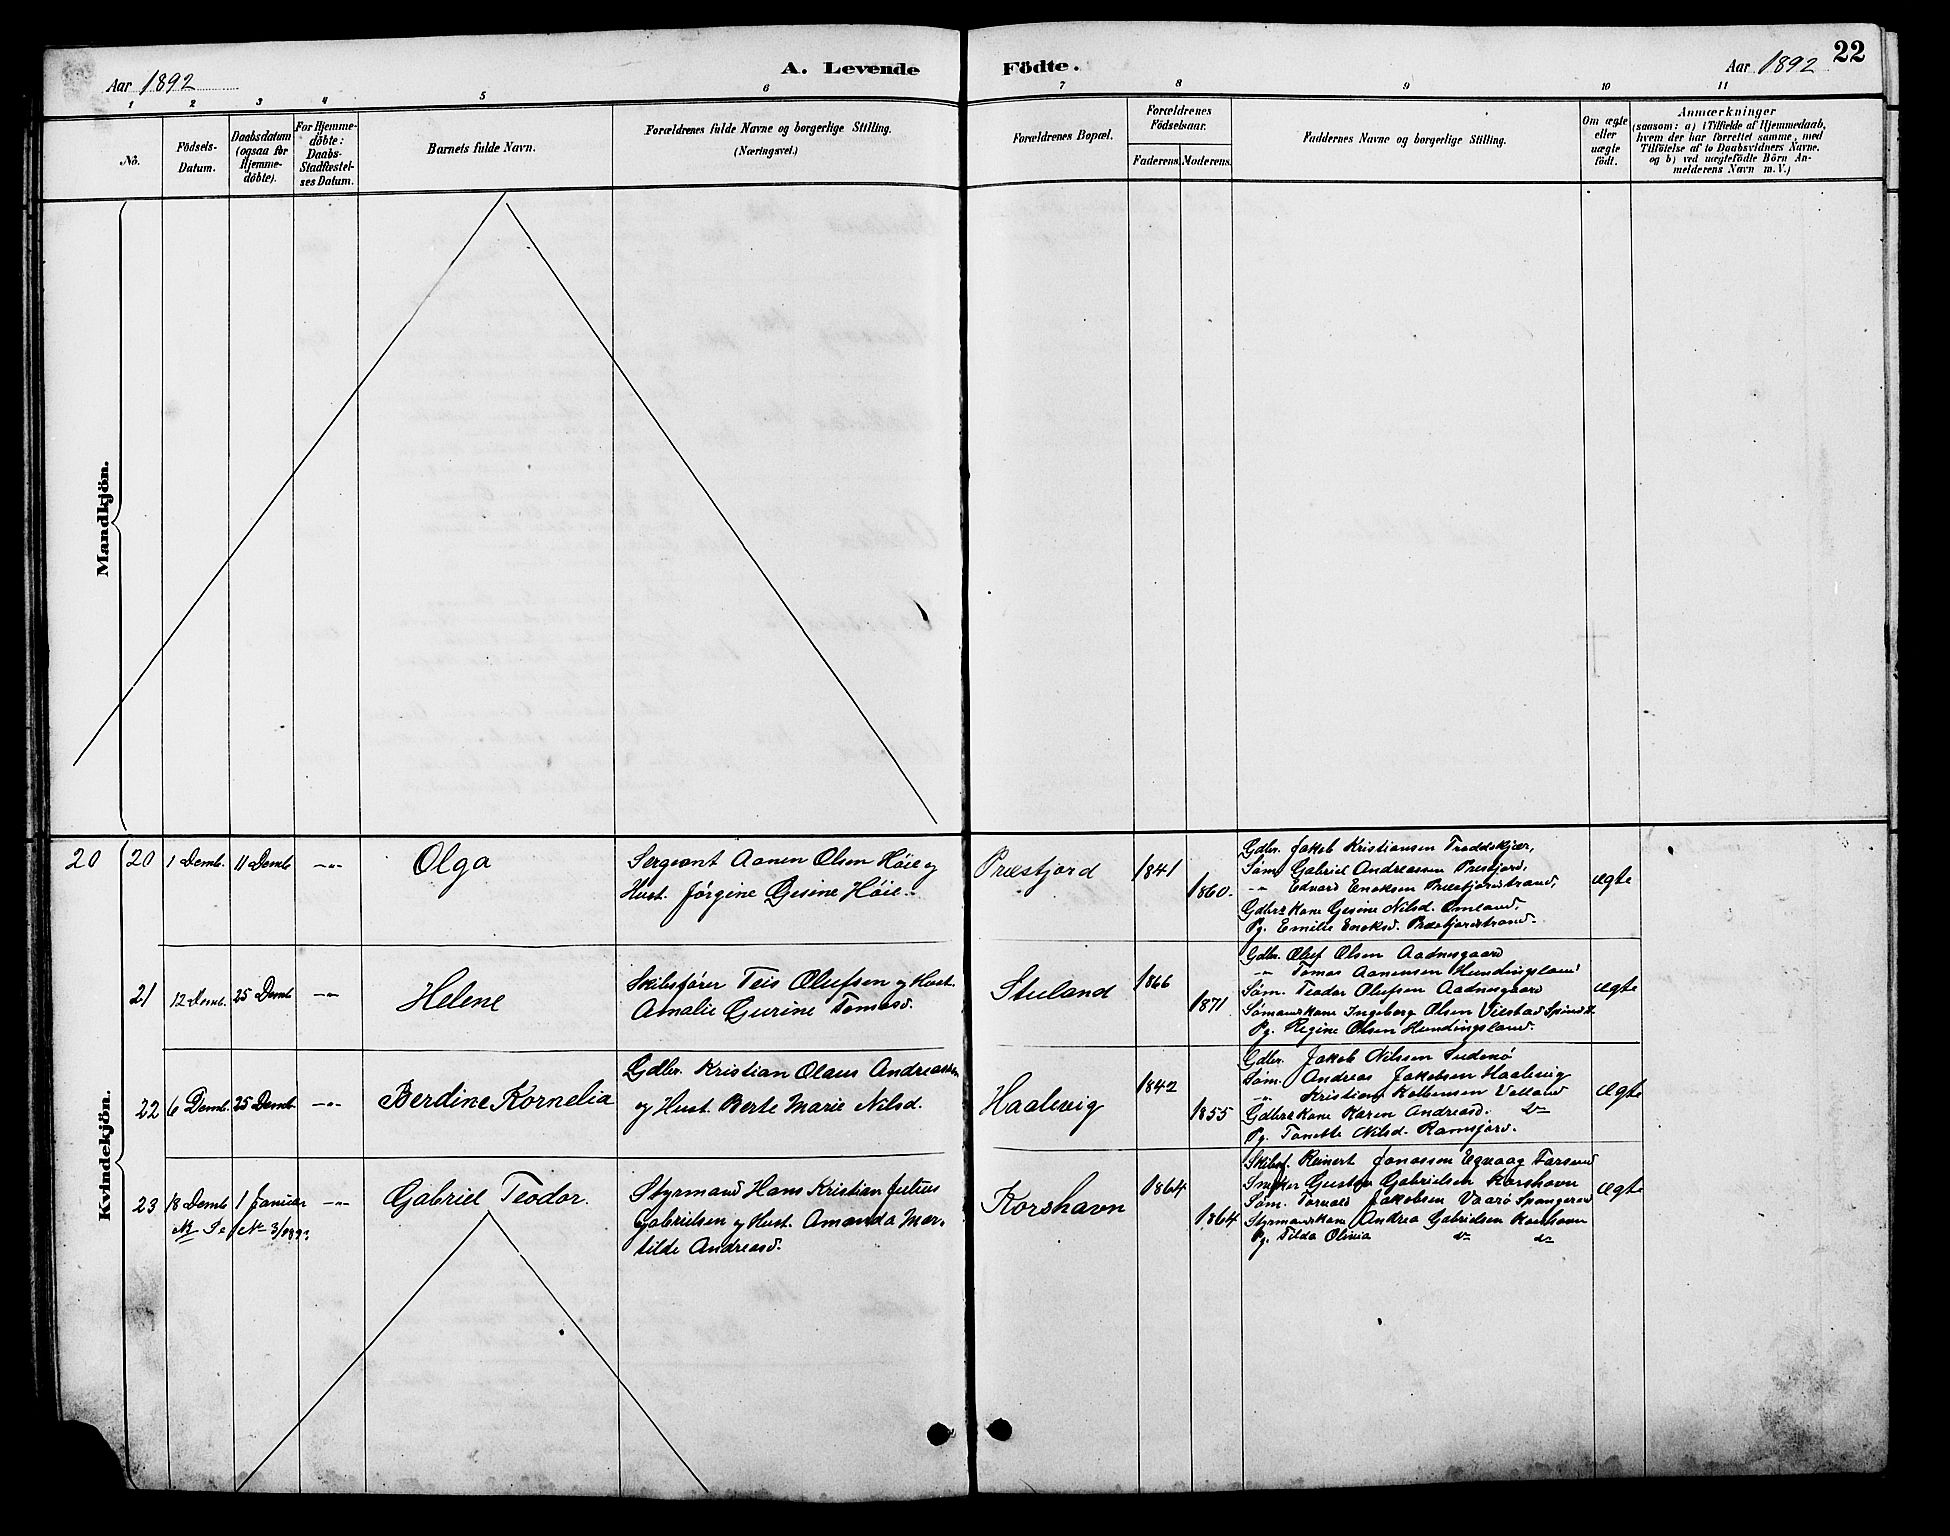 Aar 1892
A. Levende Födte.
Aar 1892
22
1 2 3 4 5 6 7 8 9 10 11
No.
Födsels-
Datum.
Daabsdatum
(ogsaa for
Hjemme-
döbte).
For Hjemme-
döbte:
Daabs-
Stadfæstel-
ses Datum.
Barnets fulde Navn.
Forældrenes fulde Navne og borgerlige Stilling.
(Næringsvei.)
Forældrenes Bopæl.
Forældrenes
Födselsaar.
Faderens.
Moderens.
Faddernes Navne og borgerlige Stilling.
Om ægte
eller
uægte
födt.
Anmærkninger
(saasom: a) i Tilfælde af Hjemmedaab,
hvem der har forrettet samme, med
Tilföielse af to Daabsvidners Navne.
og b) ved uægtefödte Börn An-
melderens Navn m. V.)
Mandkjön.
Kvindekjön.
20 20 1 Demb. 11 Demb -"-
Olga
Sergeant Aanen Olsen Höie og
Hust. Jörgine Gesine Höie.
Præstfjord
1841
1860.
Gdbr. Jakob Kristiansen Traddskjær,
Söm. Gabriel Andreassen Prestfjord,
-"- Edvard Enoksen Præstfjordstrand,
Gdbrs Kone Gesine Nilsd. Omland.
Pg. Emilie Enoksd. Præstfjordstrand.
ægte
21 12 Demb. 25 Demb -"-
Helene
Skibsförer Teis Olufsen og Hust.
Amalie Gurine Tomasd.
Stuland
1866
1871
Gdbr. Oluf Olsen Aadnesgaard
-"- Tomas Aanensen Hundingsland
Söm. Teodor Olufsen Aadnesgaard
Sömandskone Ingeborg Olsen
Pg. Regine Olsen Hundingsland.
ægte
22 6 Demb. 25 Demb. -"-
Berdine Kornelia
Gdbr. Kristian Olaus Andreassen
og Hust. Berte Marie Nilsd.
Haalevig
1842
1855
Gdbr. Jakob Nilssen
Söm. Andreas Jakobsen Haalevig
-"- Kristian
Gdbrs Kone Karen Andreasd. do
Pg. Tonette Nilsd. Ramsfjord.
ægte
23 18 Demb 1 Januar -"-
Gabriel Teodor.
Styrmand Hans Kristian Julius
Gabrielsen og Hust. Amanda Mar-
tilde Andreasd.
Korshavn
1864
1864
Skibsf. Reinert Jonassen Egvaag Farsund
Gustav Gabrielsen Korshavn
Söm. Torvald Jakobsen Vaarö Spangereid
Styrmandskone Andrea Gabrielsen Korshavn
Pg. Tilda Olivia do do
ægte